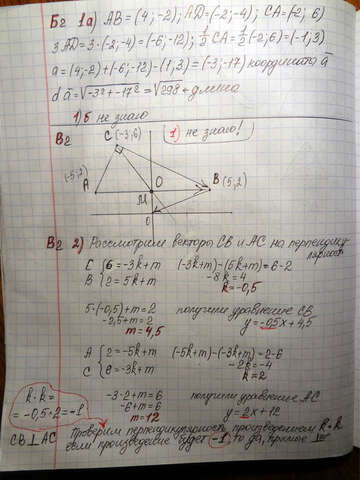 Б2 1а) AB = (4; -2); AD = (-2; -4); CA = (-2; 6)
3 AD = 3·(-2; -4) = (-6; -12); 1/2 CA = 1/2 (-2; 6) = (-1; 3)
a = (4; -2) + (-6; -12) - (1; 3) = (-3; -17) координата a
d a = √-3² + -17² = √298 ← длина
1) б не знаю
В2
C (-3; 6)
1) не знаю!
(-5; 2)
A
O
B (5; 2)
M
0
В2 2) Рассмотрим векторы CB и AC на перпендику-
лярность
C { 6 = -3k+m (-3k+m) - (5k+m) = 6-2
B { 2 = 5k+m -8k = 4
k = -0,5
5·(-0,5)+m = 2 получили уравнение CB
-2,5+m = 2 y = -0,5x + 4,5
m = 4,5
A { 2 = -5k+m (-5k+m) - (-3k+m) = 2-6
C { 6 = -3k+m -2k = -4
k = 2
k · k =
= -0,5·2 = -1
CB ⊥ AC
-3·2+m = 6 получили уравнение AC
-6+m = 6 y = 2x + 12
m = 12
Проверим перпендикулярность произведением k · k
если произведение будет -1, то да, прямые